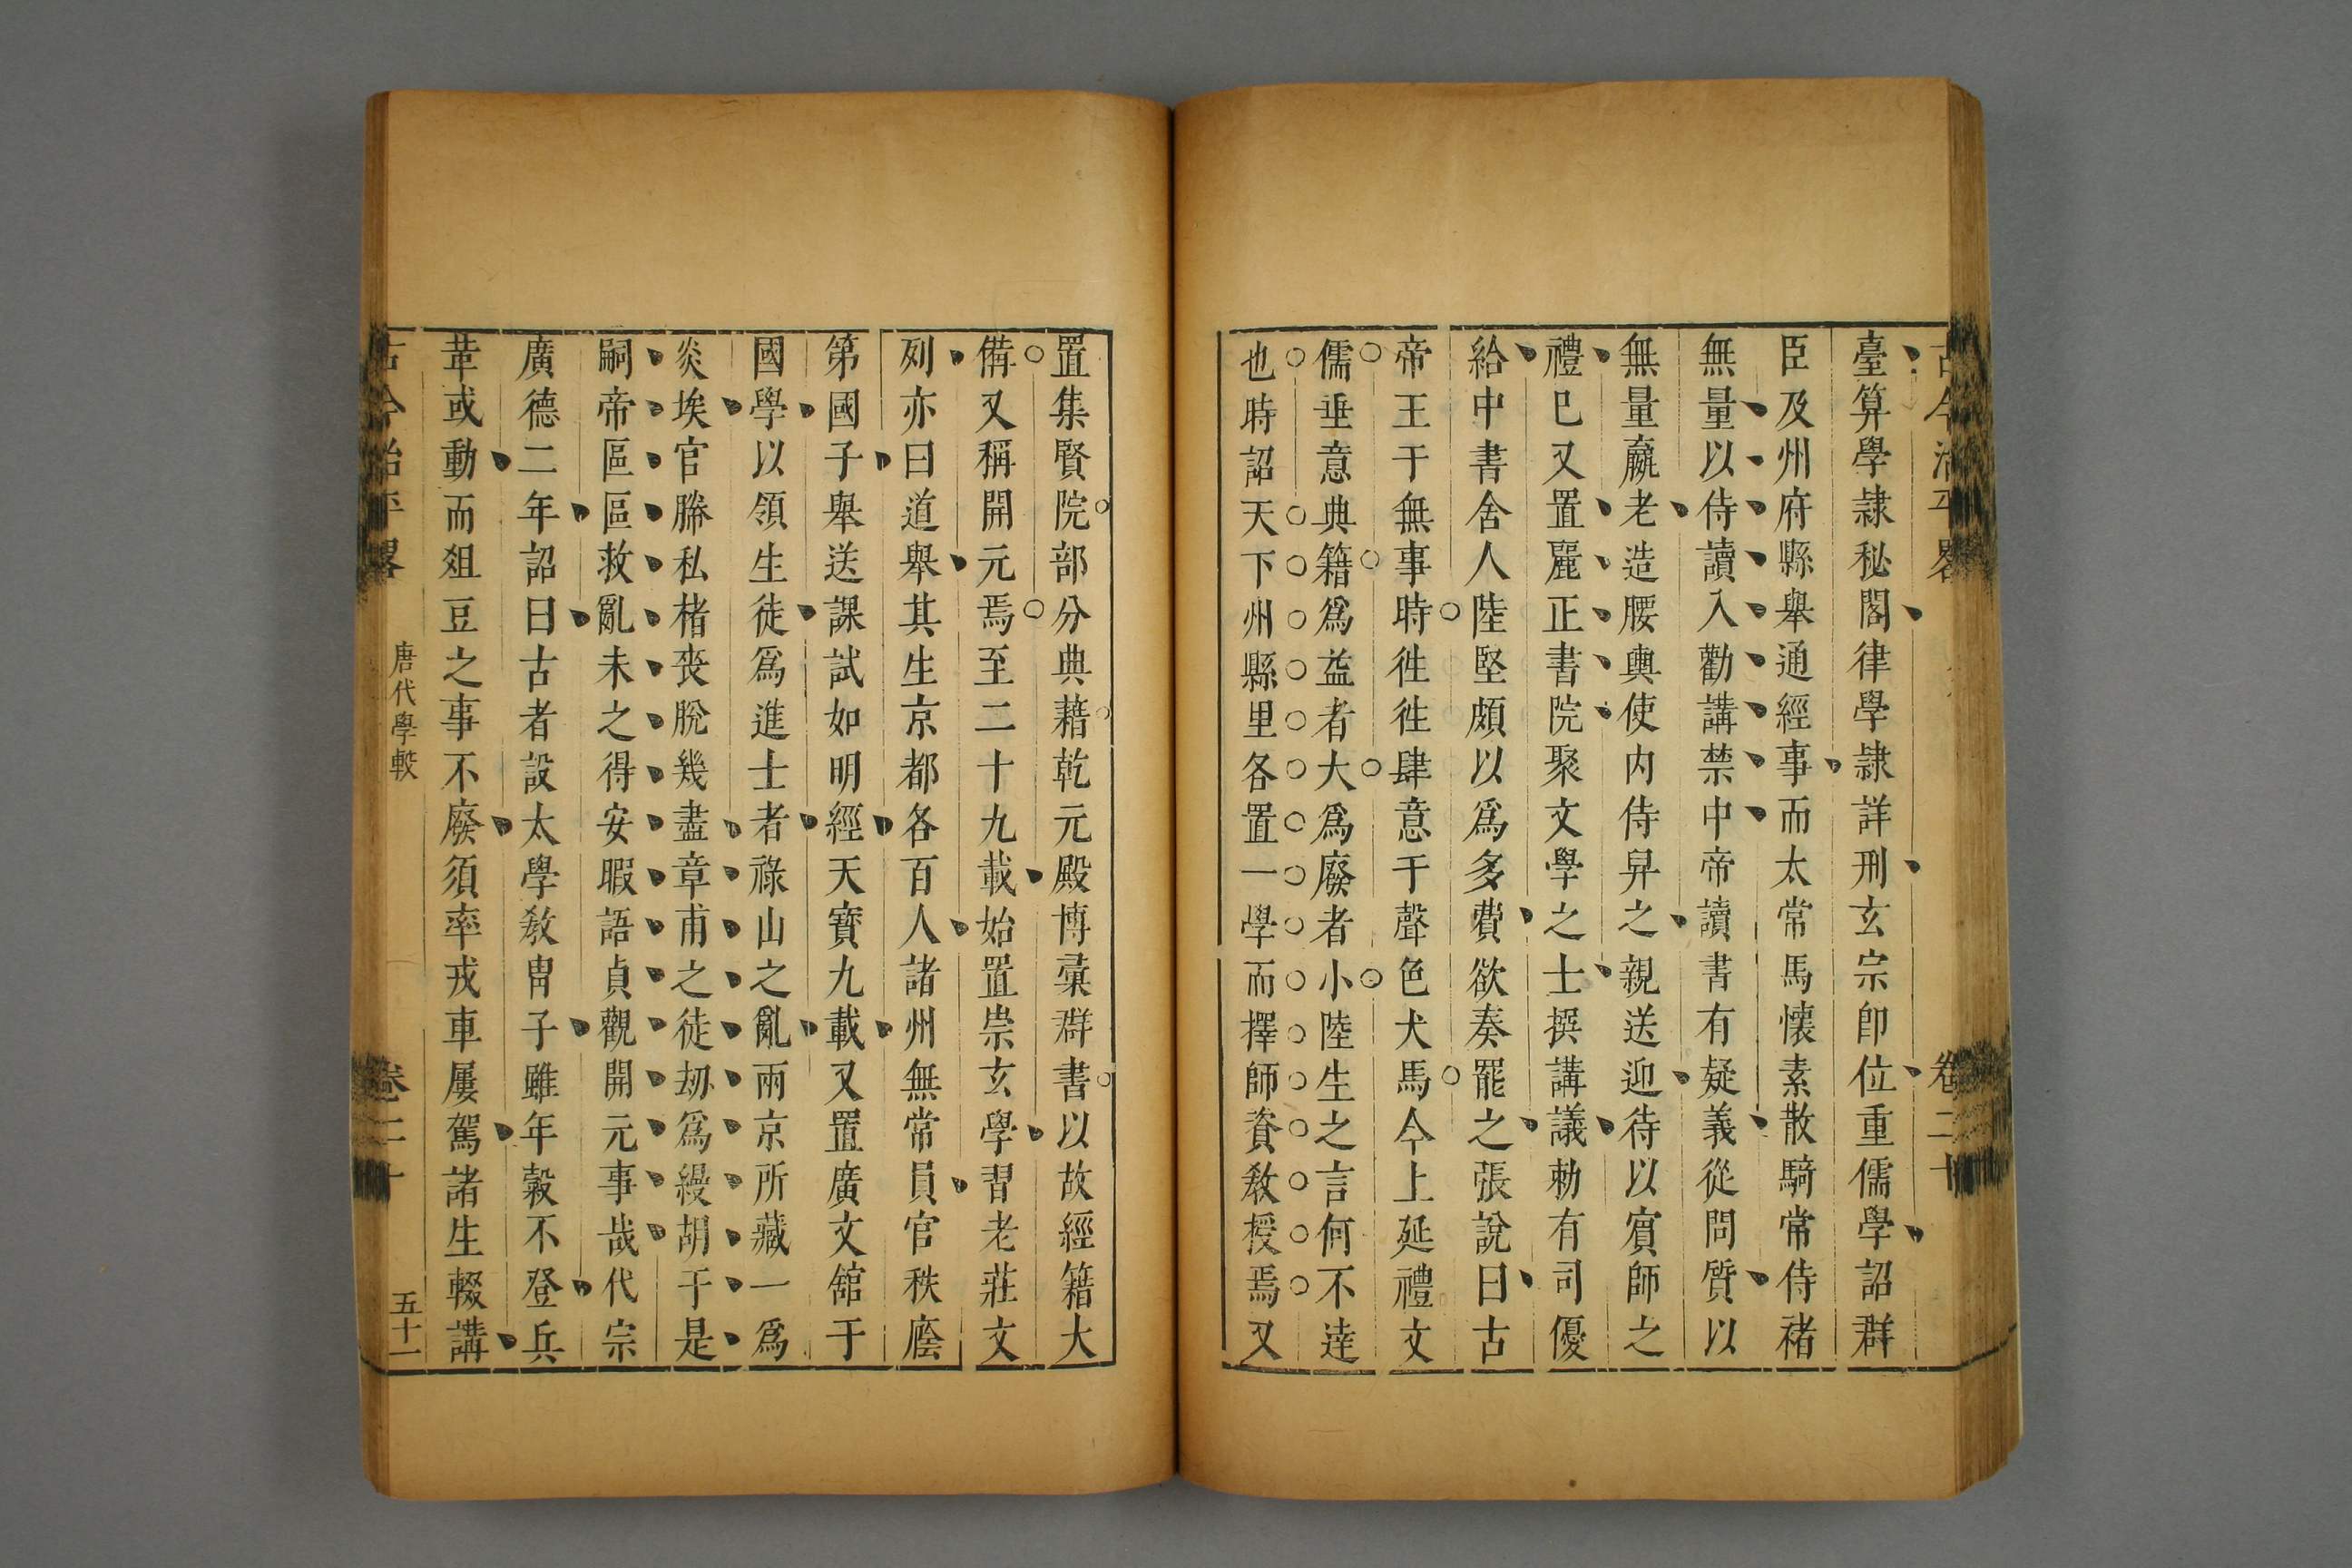 古今治平畧
卷二十
臺算學隷秘閣律學隷詳刑玄宗卽位重儒學詔群
臣及州府縣舉通經事而太常馬懷素散騎常侍褚
無量以侍讀入勸講禁中帝讀書有疑義從問質以
無量羸老造腰輿使内侍舁之親送迎待以賓師之
禮巳又置麗正書院聚文學之士撰講議勅有司優
給中書舍人陸堅頗以爲多費欲奏罷之張說曰古
帝王于無事時徃徃肆意于聲色犬馬今上延禮文
儒垂意典籍爲益者大爲廢者小陸生之言何不達
也時詔天下州縣里各置一學而擇師資敎授焉又
置集賢院部分典藉乾元殿博彚群書以故經籍大
備又稱開元焉至二十九載始置崇玄學習老莊文
列亦曰道舉其生京都各百人諸州無常員官秩廕
第國子舉送課試如明經天寳九載又置廣文舘于
國學以領生徒爲進士者祿山之亂兩京所藏一爲
炎埃官縢私楮喪脫幾盡章甫之徒刼爲縵胡于是
嗣帝區區救亂未之得安暇語貞觀開元事哉代宗
廣德二年詔曰古者設太學敎胄子雖年穀不登兵
革或動而爼豆之事不廢須率戎車屢駕諸生輟講
古今治平畧
唐代學較
卷二十
五十一